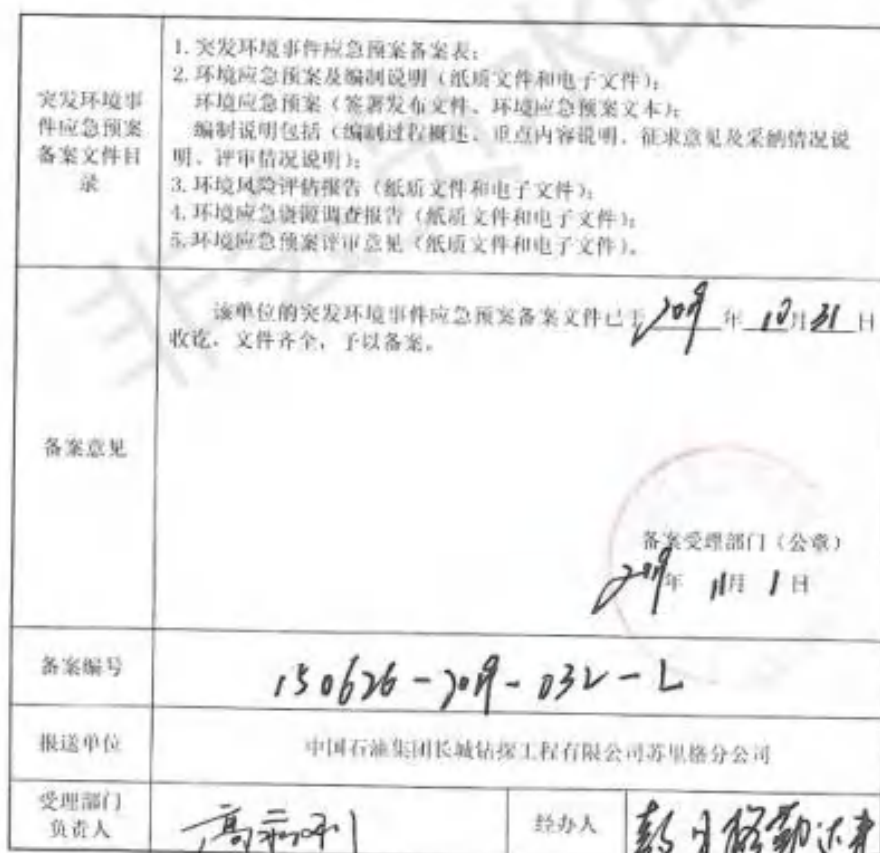 突发环境事
件应急预案
备案文件目
录
1. 突发环境事件应急预案备案表;
2. 环境应急预案及编制说明(纸质文件和电子文件);
环境应急预案(签署发布文件、环境应急预案文本);
编制说明包括(编制过程概述、重点内容说明、征求意见及采纳情况说
明、评审情况说明);
3. 环境风险评估报告(纸质文件和电子文件);
4. 环境应急资源调查报告(纸质文件和电子文件);
5. 环境应急预案评审意见(纸质文件和电子文件)。
备案意见
该单位的突发环境事件应急预案备案文件已于2019年10月31日
收讫,文件齐全,予以备案。
备案受理部门(公章)
2019年11月1日
备案编号
150626-2019-032-L
报送单位
中国石油集团长城钻探工程有限公司苏里格分公司
受理部门
负责人
经办人